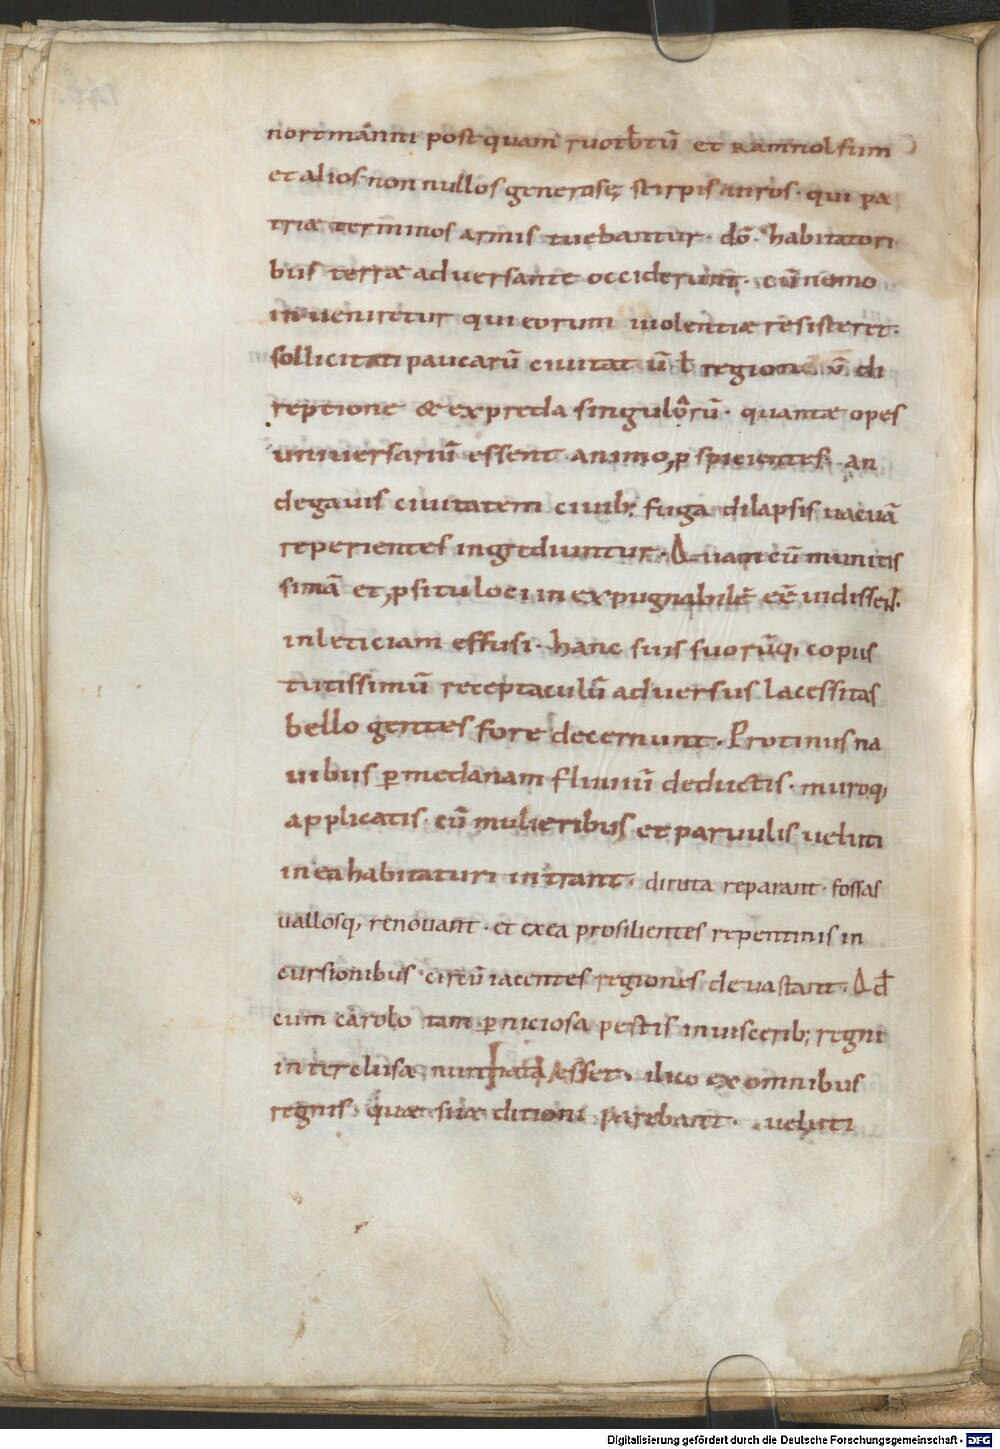 nortmanni postquam ruotbtū et Ramnolfum
et alios non nullos generosę stirpis uiros · qui pa
triæ terminos armis tuebantur · dō · habitatori
bus terræ aduersante occiderunt · cū nemo
inueniretur qui eorum uiolentiæ resisteret ·
sollicitati paucarū ciuitatū ł regionū di
reptione & ex preda singulorū · quantæ opes
uniuersariū essent animo ꝓspicientes · an
degauis ciuitatem ciuib; fuga dilapsis uacuā
reperientes ingrediuntur · Quam cū munitis
simā et ꝓ situ loci inexpugnabilē eē uidissent ·
in leticiam effusi · hanc suis suorūq, copiis
tutissimū receptaculū aduersus lacessitas
bello gentes fore decernunt · Protinus na
uibus ꝑ medanam fluuiū deductis · muroq,
applicatis · cū mulieribus et paruulis ueluti
in ea habitaturi intrant · diruta reparant · fossas
uallosq, renouant · et ex ea prosilientes repentinis in
cursionibus · circū iacentes regiones deuastant · Qđ
cum carolo tam ꝑniciosa pestis in uiscerib; regni
interclusa nuntiata esset · ilico ex omnibus
regnis · quæ suæ ditioni parebant · ueluti
Digitalisierung gefördert durch die Deutsche Forschungsgemeinschaft - DFG